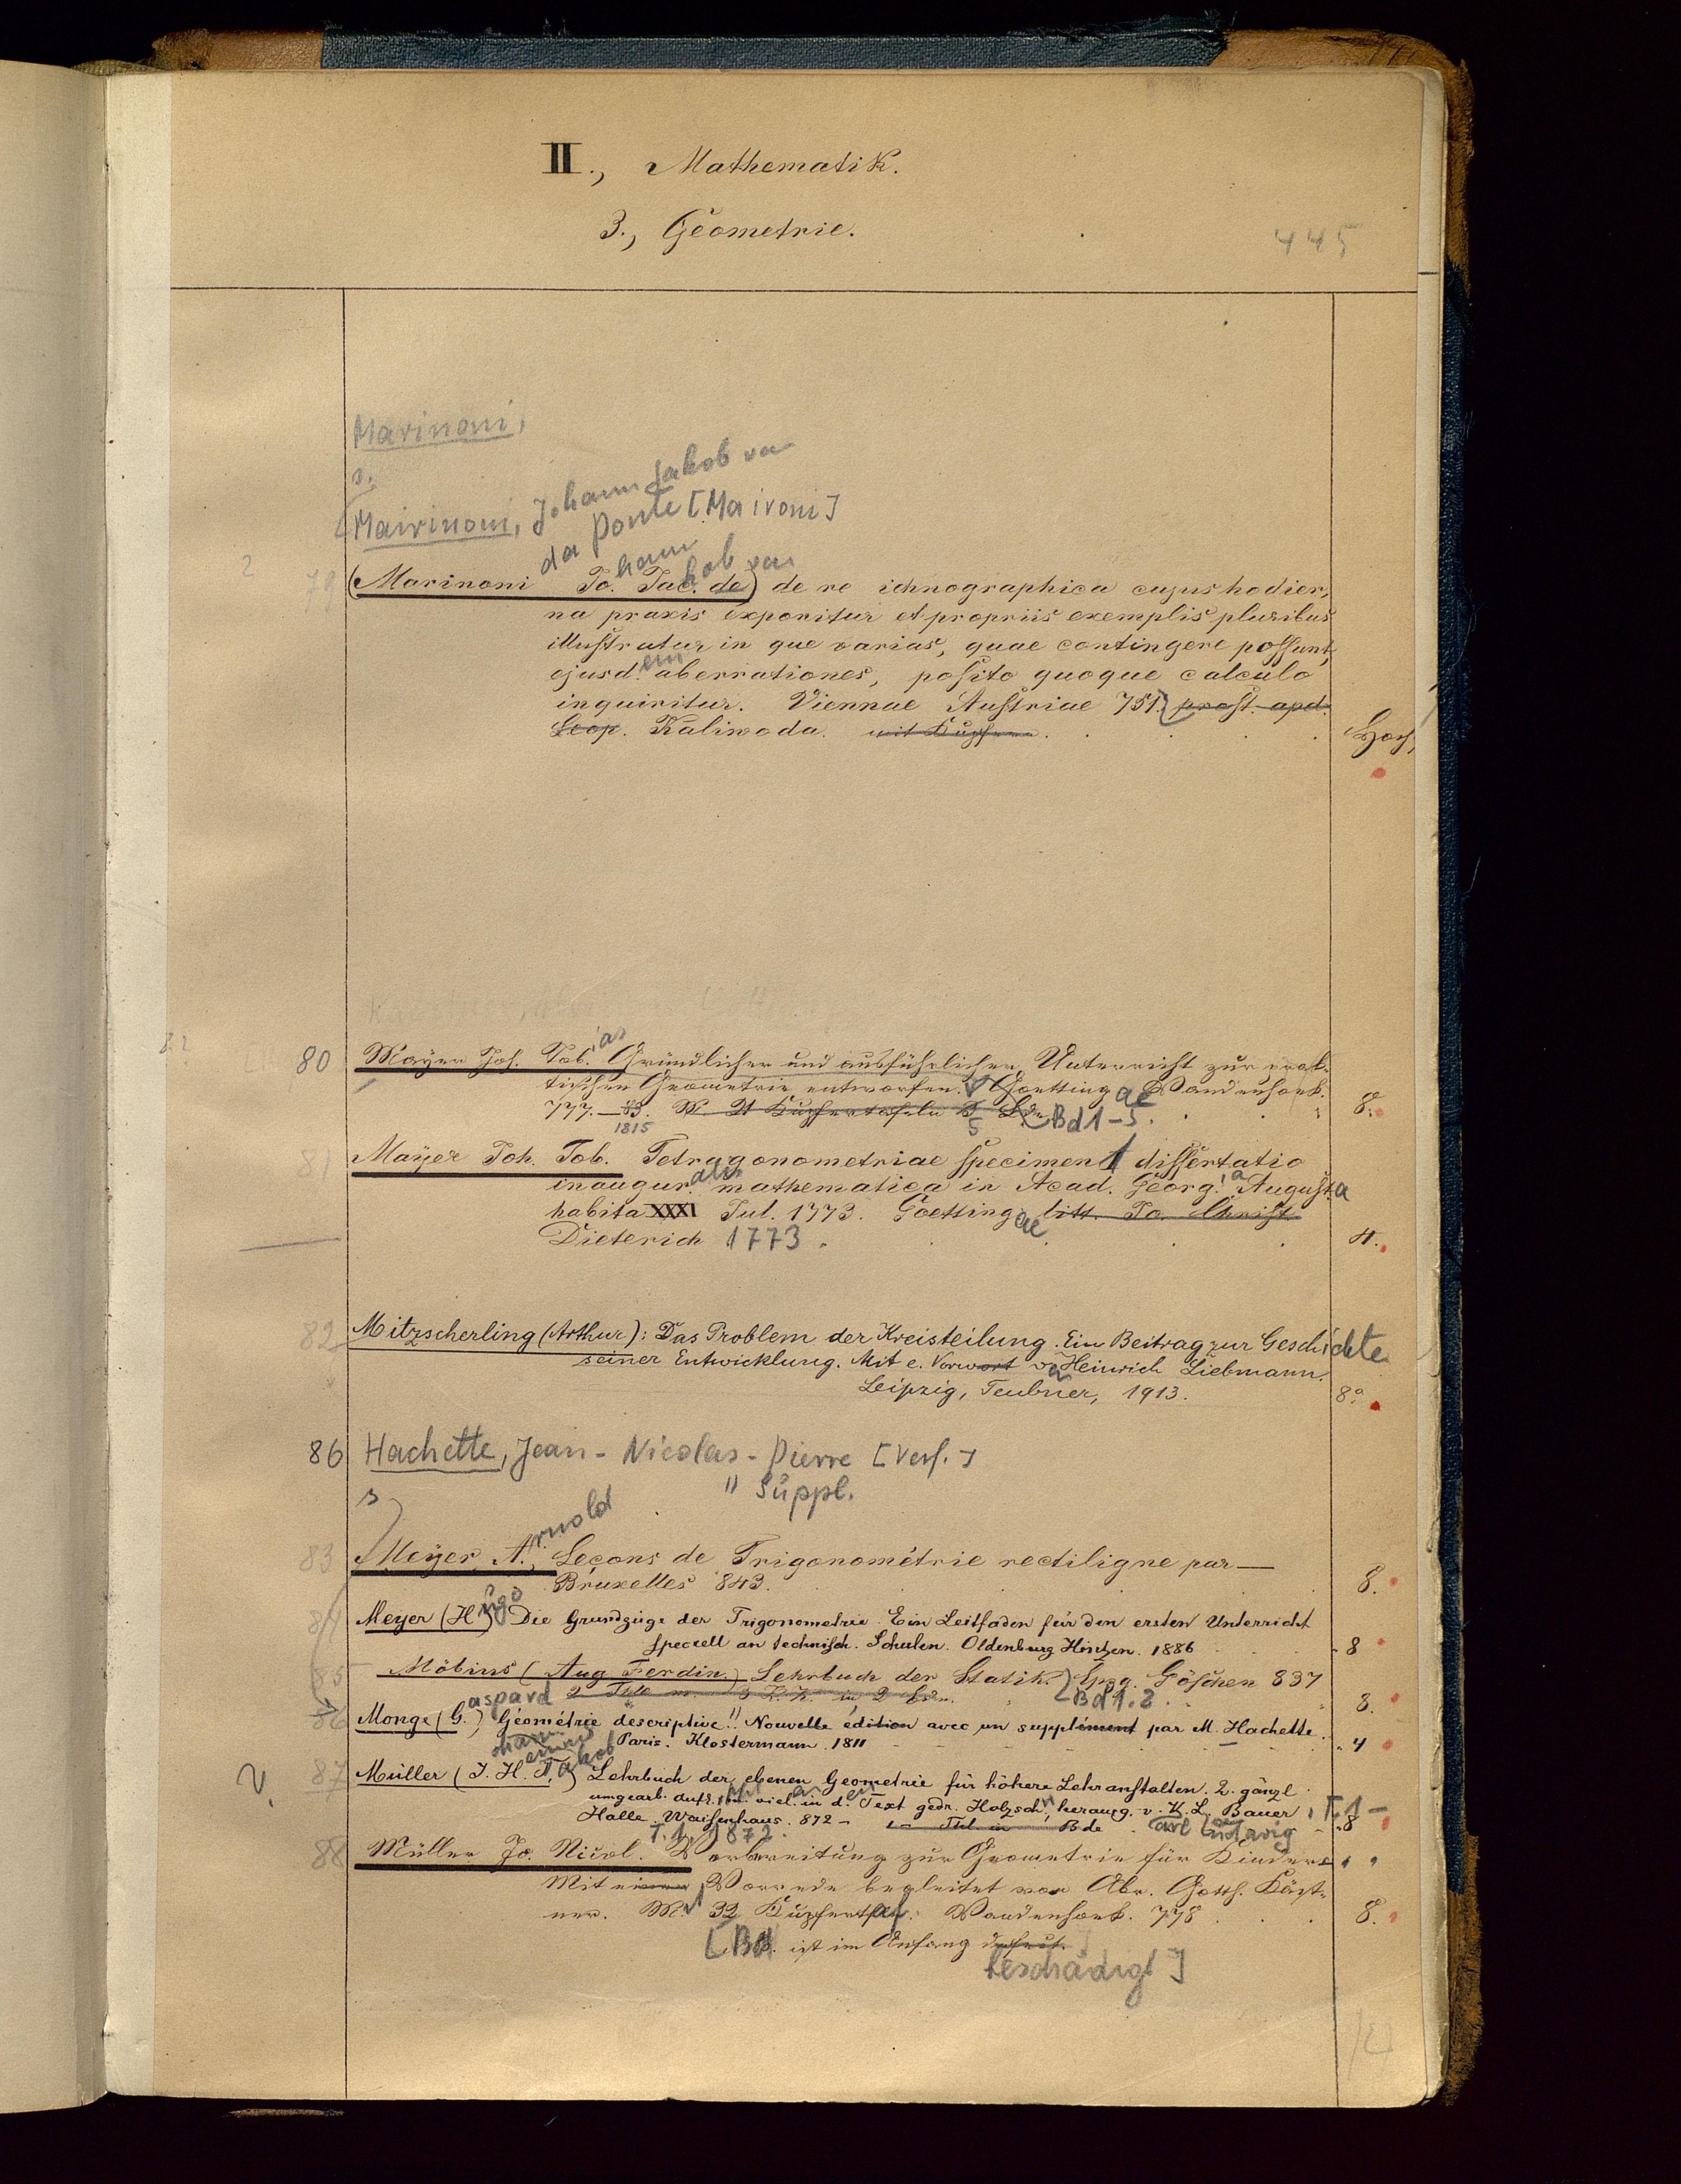 II., Mathematik.
3., Geometrie.
445
Marinoni,
s.
Mairinoni, Johann Jakob von
da Ponte [Maironi]
79 (Marinoni Jo.hann Jac.kob de von) de re ichnographica cujus hodier,
na praxis exponitur et propriis exemplis pluribus
illustratur in que varias, quae contingere possunt,
ejusd.em aberrationes, posito quoque calculo
inquiritur. Viennae Austriae 751. prost. apd.
Leop. Kaliwoda. mit Kupfern.
80 Mayer Joh. Tob.ias Gründlicher und ausführlicher Unterricht zur prak-
tischen Geometrie entworfen. Goettingae Vandenhoek.
777.—83. 21 Kupfertafeln 5 Bd 1-5. 8.
1815
81 Mayer Joh. Tob. Tetragonometriae specimen 1 dissertatio
inaugur.alis mathematica in Acad. Georg.ia Augusta
habita XXXI Jul. 1773. Goettingae litt. Jo. Christ.
Dieterich 1773. 4.
82 Mitzscherling (Arthur): Das Problem der Kreisteilung. Ein Beitrag zur Geschichte
seiner Entwicklung. Mit e. Vorwort v. Heinrich Liebmann.
Leipzig, Teubner, 1913. 8°.
86 Hachette, Jean-Nicolas-Pierre [Verf.]
s " Suppl.
83 Meyer A.rnold, Leçons de Trigonométrie rectiligne par—
Bruxelles 843. 8.
84 Meyer (Hugo) Die Grundzüge der Trigonometrie. Ein Leitfaden für den ersten Unterricht
speciell an technisch. Schulen. Oldenburg Hintzen. 1886 8
85 Möbius (Aug Ferdin.) Lehrbuch der Statik. Lpzg. Göschen 837
2 Thle in 2 Bdn. [Bd 1.2. 8.
86 Monge (G.aspard) Géométrie descriptive". Nouvelle édition avec un supplément par M. Hachette.
Paris. Klostermann. 1811 4
V. 87 Müller (J. H. T.) Lehrbuch der ebenen Geometrie für höhere Lehranstalten. 2. gänzl.
umgearb. Aufl. m. viel. in d. Text gedr. Holzsch., herausg. v. K. L. Bauer, T. 1-
Halle. Waisenhaus. 872 - Thl in Bde arl Ludwig 8
T. 1. 1872.
88 Müller Jo. Nicol. Vorbereitung zur Geometrie für Kinder
Mit einer Vorrede begleitet von Abr. Gotth. Käst-
ner. M. 32 Kupfertaf. Vandenhoek. 778 8.
[Bd. ist im Anfang defect.
beschädigt]